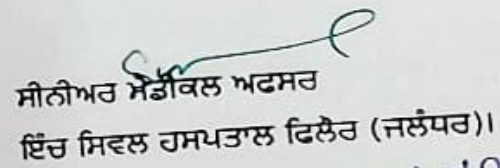 ਸੀਨੀਅਰ ਮੈਡੀਕਲ ਅਫਸਰ
ਇੰਚ ਸਿਵਲ ਹਸਪਤਾਲ ਫਿਲੌਰ (ਜਲੰਧਰ)।